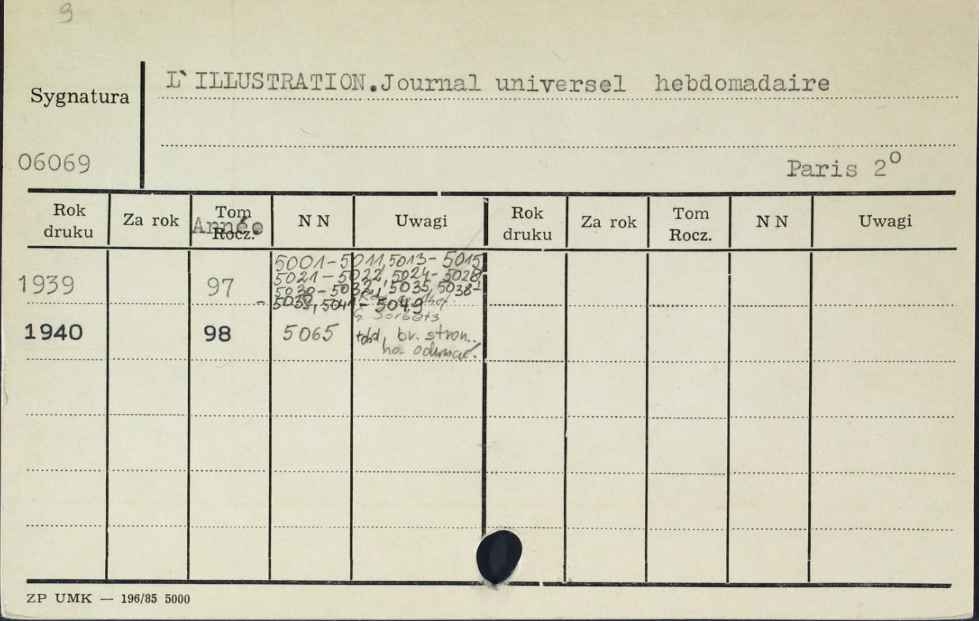 9
L`ILLUSTRATION.Journal universel hebdomadaire
Sygnatura
06069
Paris 2º
Rok druku Za rok Tom Rocz. Année N N Uwagi Rok druku Za rok Tom Rocz. N N Uwagi
1939 97 5001-5011, 5013-5015
5021-5022, 5024-5028
5030-5032, 5035, 5038-
-5039, 5041-5049
1940 98 5065 br. stron.
ZP UMK — 196/85 5000